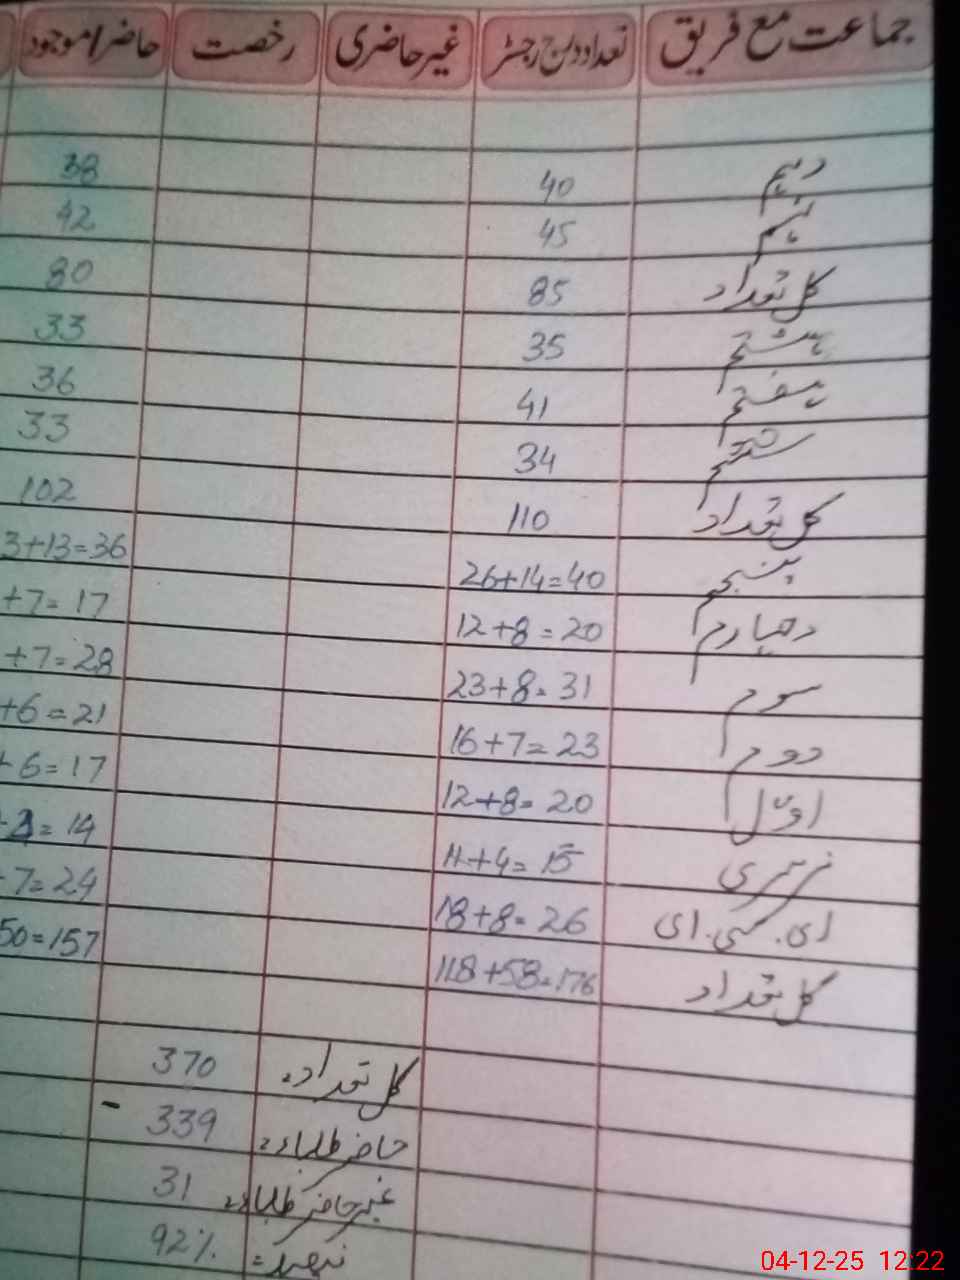 جماعت مع فریق تعداد درج رجسٹر غیر حاضری رخصت حاضر/موجود
دہم 40 38
نہم 45 42
کل تعداد 85 80
ہشتم 35 33
ہفتم 41 36
ششم 34 33
کل تعداد 110 102
پنجم 26+14=40 3+13=36
چہارم 12+8=20 +7=17
سوم 23+8=31 +7=28
دوم 16+7=23 +6=21
اوّل 12+8=20 +6=17
نرسری 11+4=15 =14
ای.سی.ای 18+8=26 7=24
کل تعداد 118+58=176 50=157
کل تعداد= 370
حاضر طلباء= 339 -
غیر حاضر طلباء= 31
92%
04-12-25 12:22